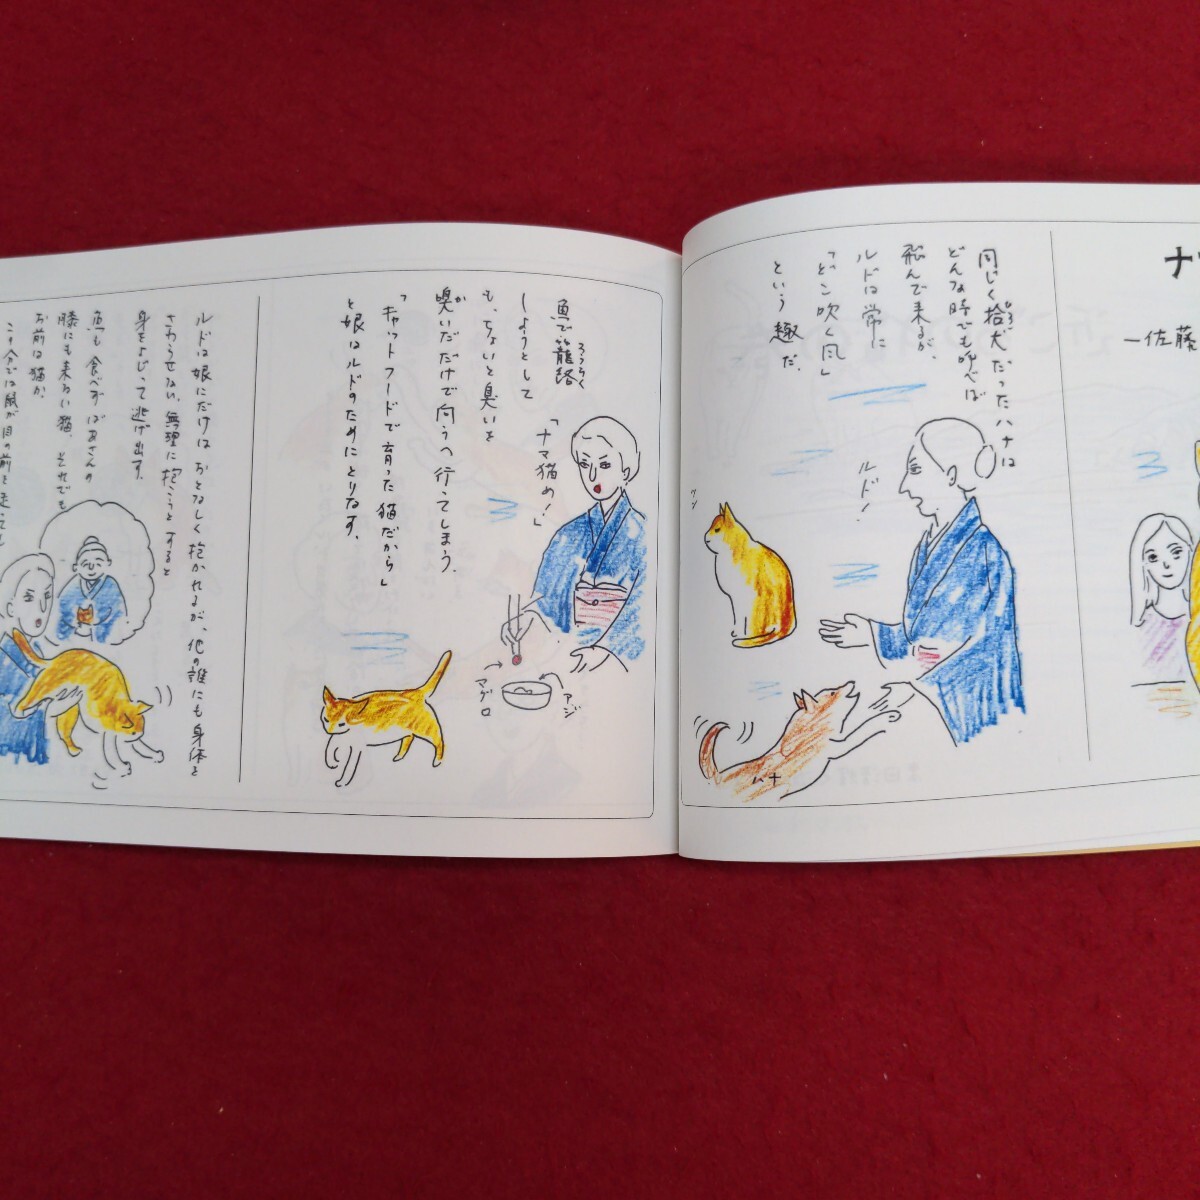 ナ
―佐藤
同じく拾犬だったハナは
ひろ
どんな時でも呼べば
飛んで来るが、
ルドは常に
「どこ吹く風」
という趣だ。
ルド!
ツン
ハナ
魚で籠絡
ろうらく
しようとして
も、ちょいと臭いを
嗅いだだけで向うへ行ってしまう。
か
「キャットフードで育った猫だから」
と娘はルドのためにとりなす。
「ナマ猫め!」
アジ
マグロ
ルドは娘にだけはおとなしく抱かれるが、他の誰にも身体を
さわらせない。無理に抱こうとすると
身をよじって逃げ出す。
魚も食べずばあさんの
膝にも来ない猫、それでも
お前は猫か。
この分では鼠が目の前を走っても